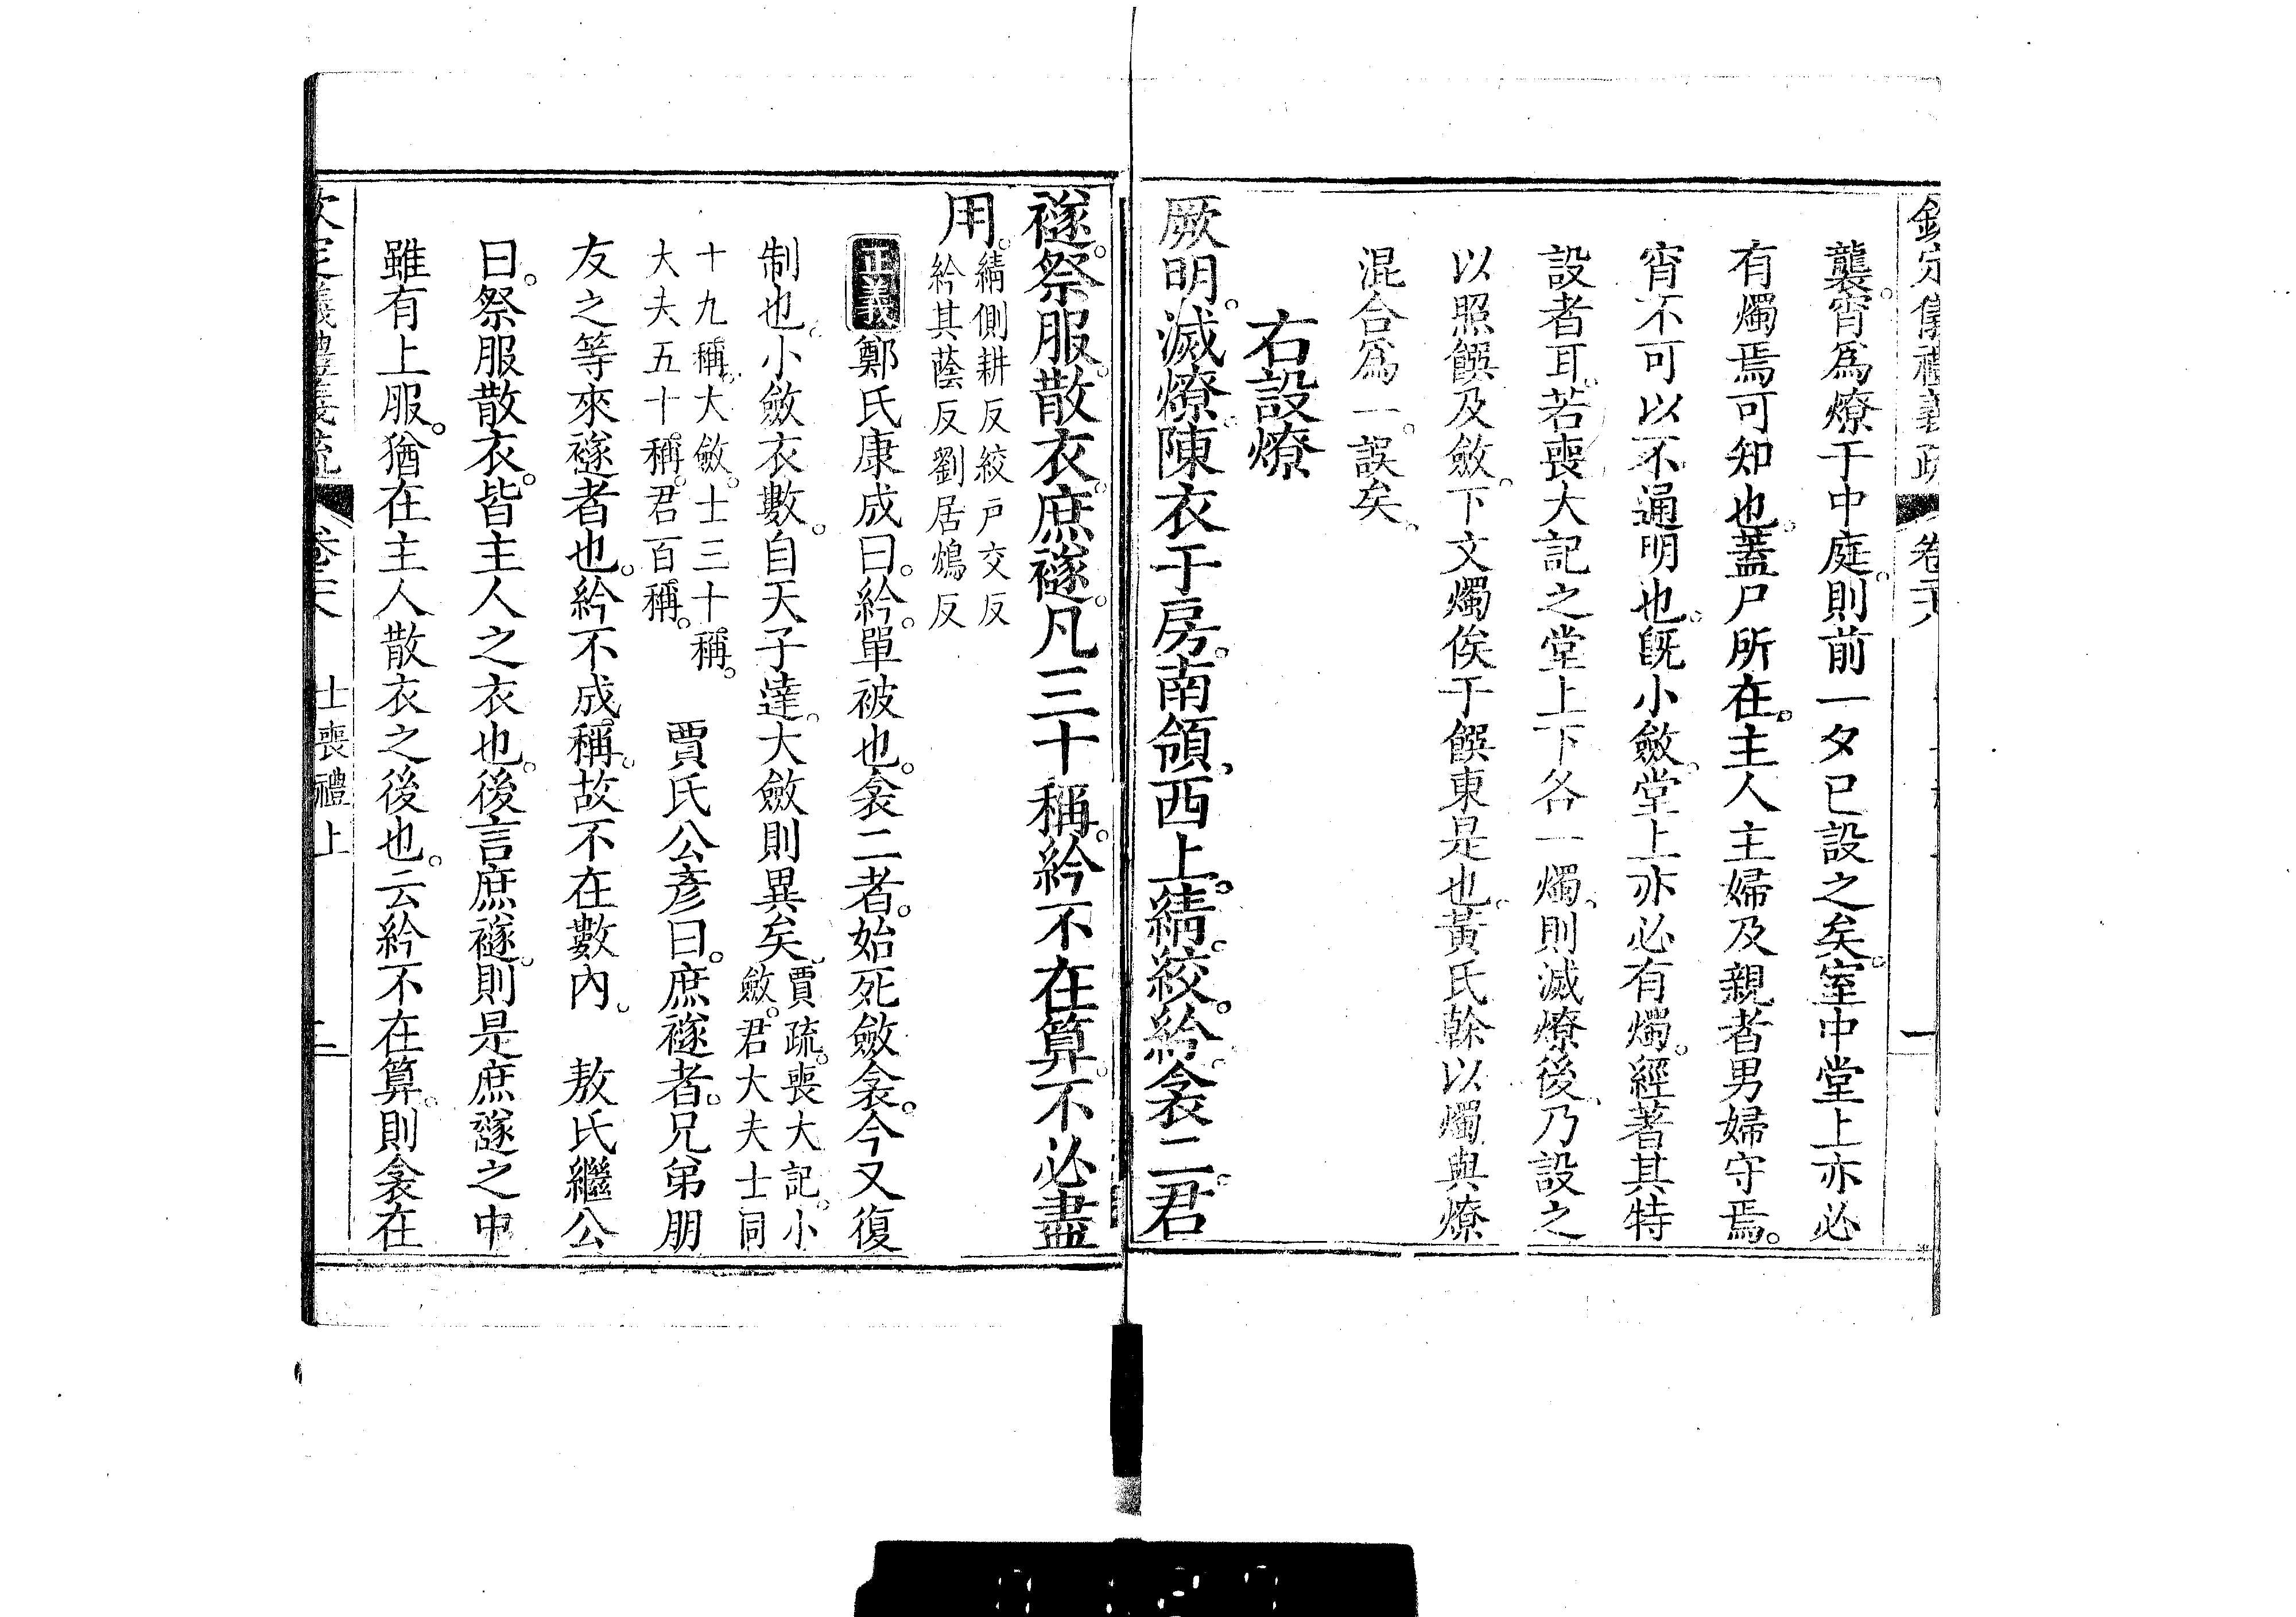 欽定儀禮義疏 卷二十八 一
襲。宵爲燎于中庭。則前一夕已設之矣。室中堂上亦必
有燭焉可知也。蓋尸所在。主人主婦及親者男婦守焉。
宵不可以不通明也。旣小斂。堂上亦必有燭。經著其特
設者耳。若喪大記之堂上下各一燭、則滅燎後、乃設之
以照饌及斂。下文燭俟于饌東是也。黃氏榦以燭與燎
混合爲一。誤矣。
右設燎
厥明。滅燎。陳衣于房。南領、西上。綪。絞。紟。衾二。君
襚。祭服。散衣。庶襚。凡三十稱。紟不在算。不必盡
用。
綪側耕反絞戸交反
紟其蔭反劉居鴆反
正義 鄭氏康成曰。紟。單被也。衾二者。始死斂衾。今又復
制也。小斂衣數。自天子達。大斂則異矣。
賈疏。喪大記。小
斂。君大夫士同
十九稱。大斂。士三十稱。
大夫五十稱。君百稱。
賈氏公彥曰。庶襚者。兄弟朋
友之等來襚者也。紟不成稱。故不在數內。 敖氏繼公
曰。祭服散衣。皆主人之衣也。後言庶襚。則是庶襚之中
雖有上服。猶在主人散衣之後也。云紟不在算。則衾在
欽定儀禮義疏 卷二十八 士喪禮上 二